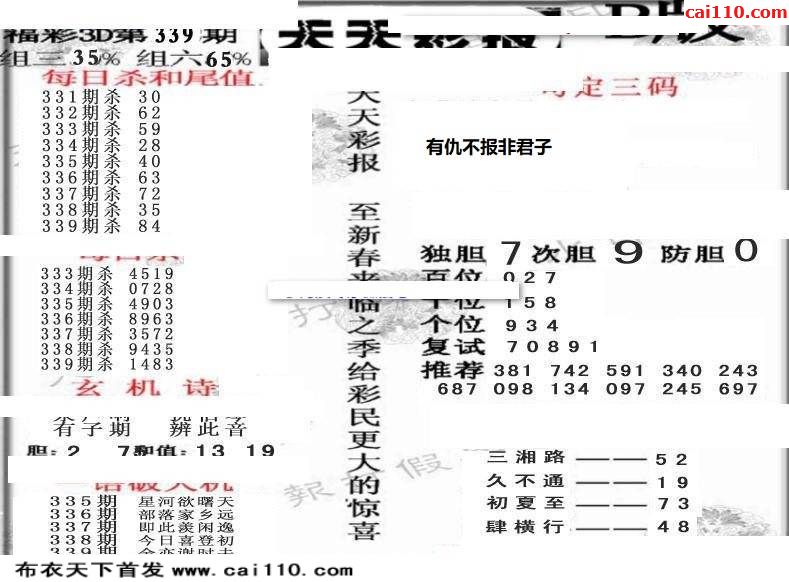 cai110.com
福彩3D第339期
天天彩报
B版
组三35% 组六65%
每日杀和尾值
331期杀 30
332期杀 62
333期杀 59
334期杀 28
335期杀 40
336期杀 63
337期杀 72
338期杀 35
339期杀 84
333期杀 4519
334期杀 0728
335期杀 4903
336期杀 8963
337期杀 3572
338期杀 9435
339期杀 1483
玄机诗
有子期 辨此音
胆：2 7和值：13 19
335期 星河欲曙天
336期 部落家乡远
337期 即此羡闲逸
338期 今日喜登初
339期
天天彩报
至新春来临之季给彩民更大的惊喜
定三码
有仇不报非君子
独胆7次胆9防胆0
百位 027
十位 158
个位 934
复试 70891
推荐 381 742 591 340 243
687 098 134 097 245 697
三湘路——52
久不通——19
初夏至——73
肆横行——48
布衣天下首发 www.cai110.com